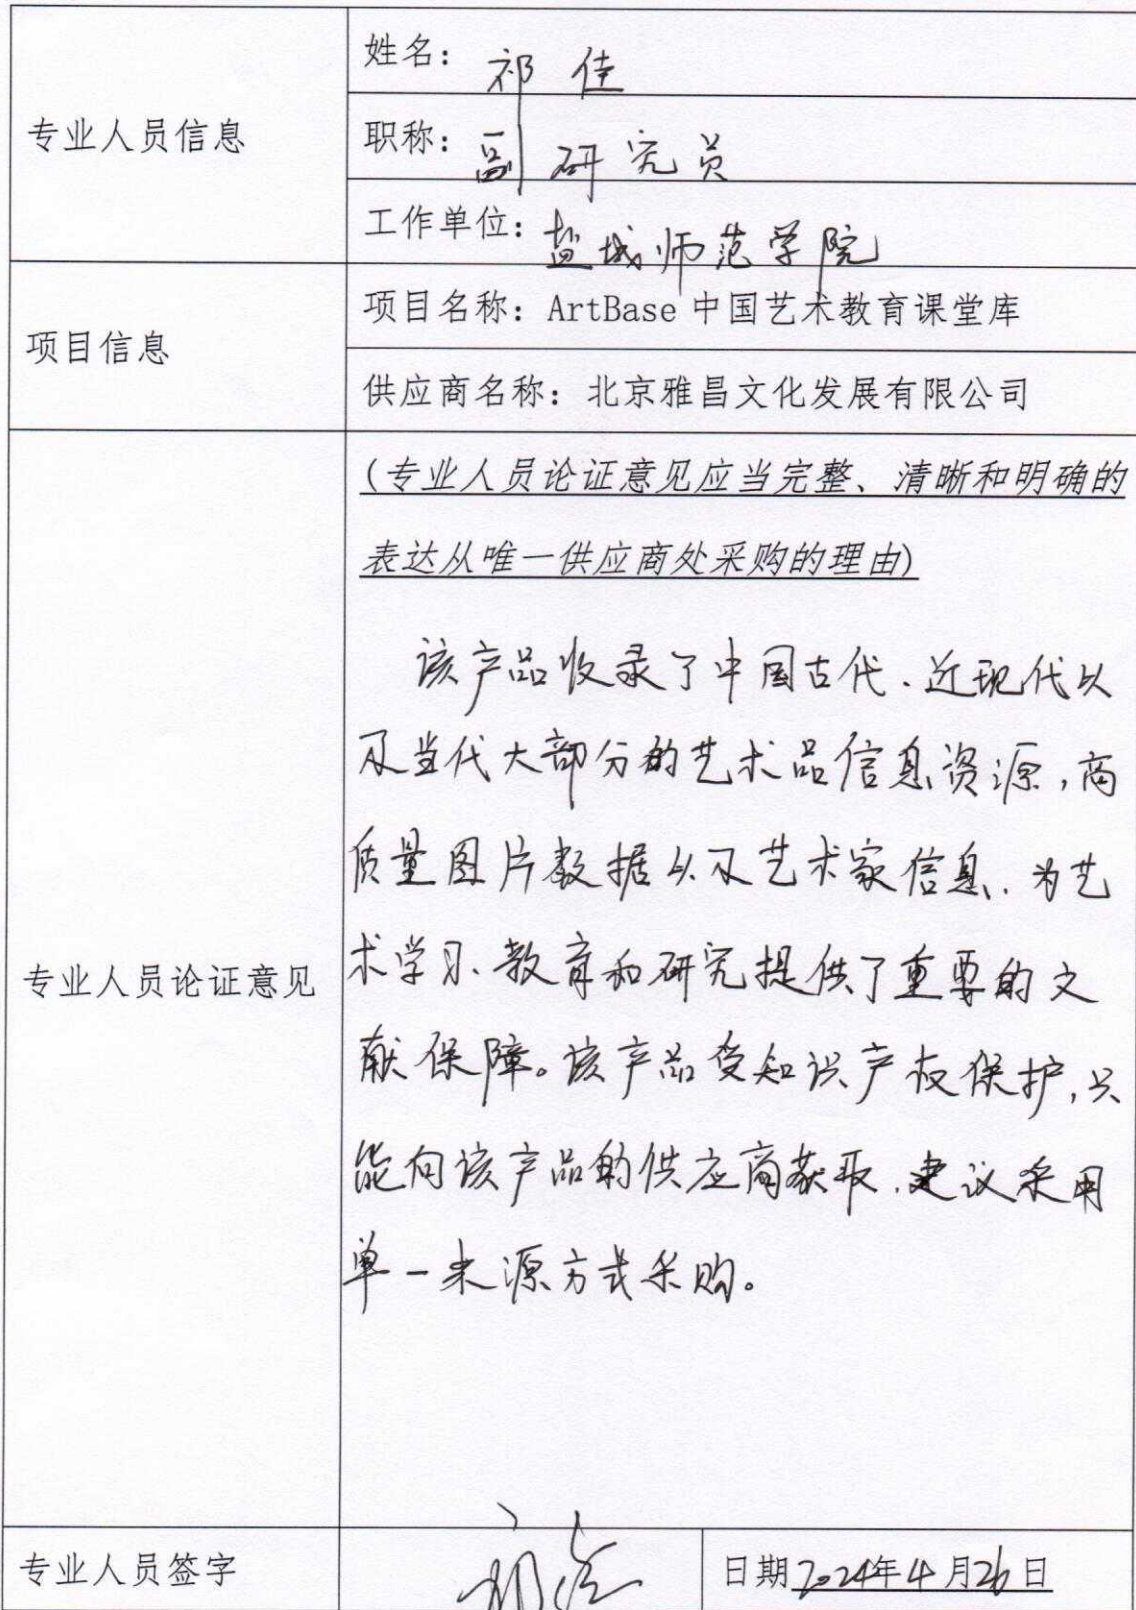 专业人员信息
姓名：祁佳
职称：副研究员
工作单位：盐城师范学院
项目信息
项目名称：ArtBase 中国艺术教育课堂库
供应商名称：北京雅昌文化发展有限公司
专业人员论证意见
(专业人员论证意见应当完整、清晰和明确的
表达从唯一供应商处采购的理由)
该产品收录了中国古代、近现代以
及当代大部分的艺术品信息资源,高
质量图片数据以及艺术家信息、为艺
术学习、教育和研究提供了重要的文
献保障。该产品受知识产权保护,只
能向该产品的供应商获取、建议采用
单一来源方式采购。
专业人员签字
祁佳
日期2024年4月26日